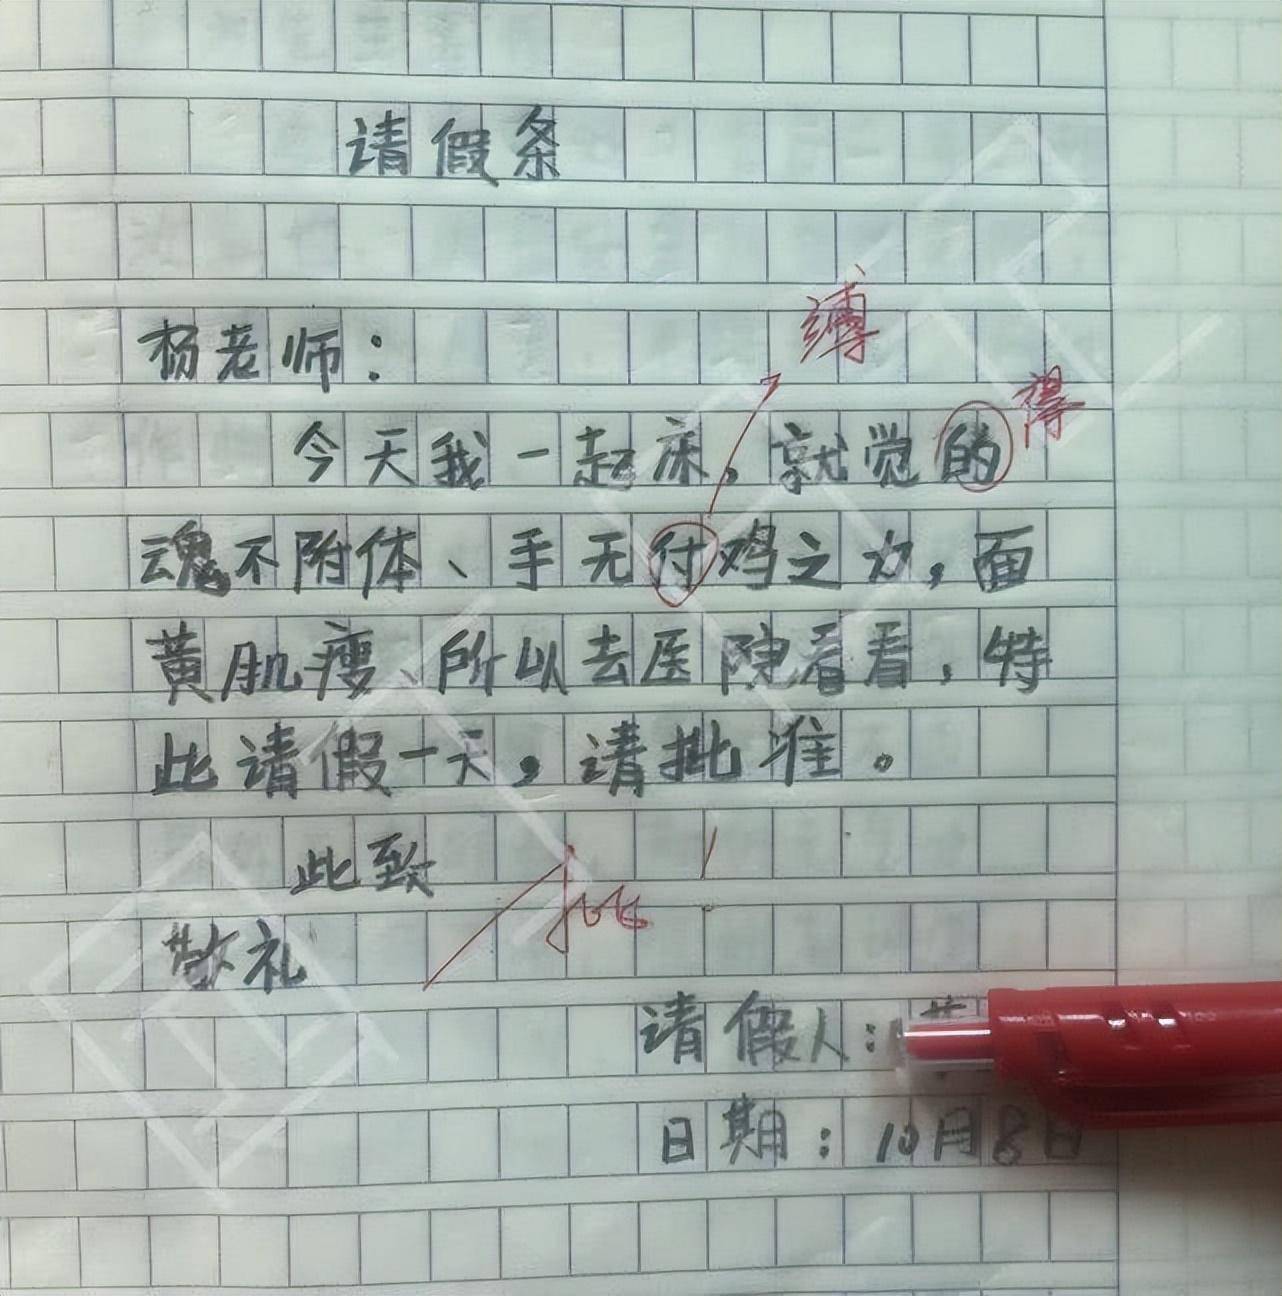 请假条
缚
杨老师：
得
今天我一起床，就觉的
魂不附体、手无付鸡之力，面
黄肌瘦、所以去医院看看，特
此请假一天，请批准。
此致
批！
敬礼
请假人：
日期：10月8日